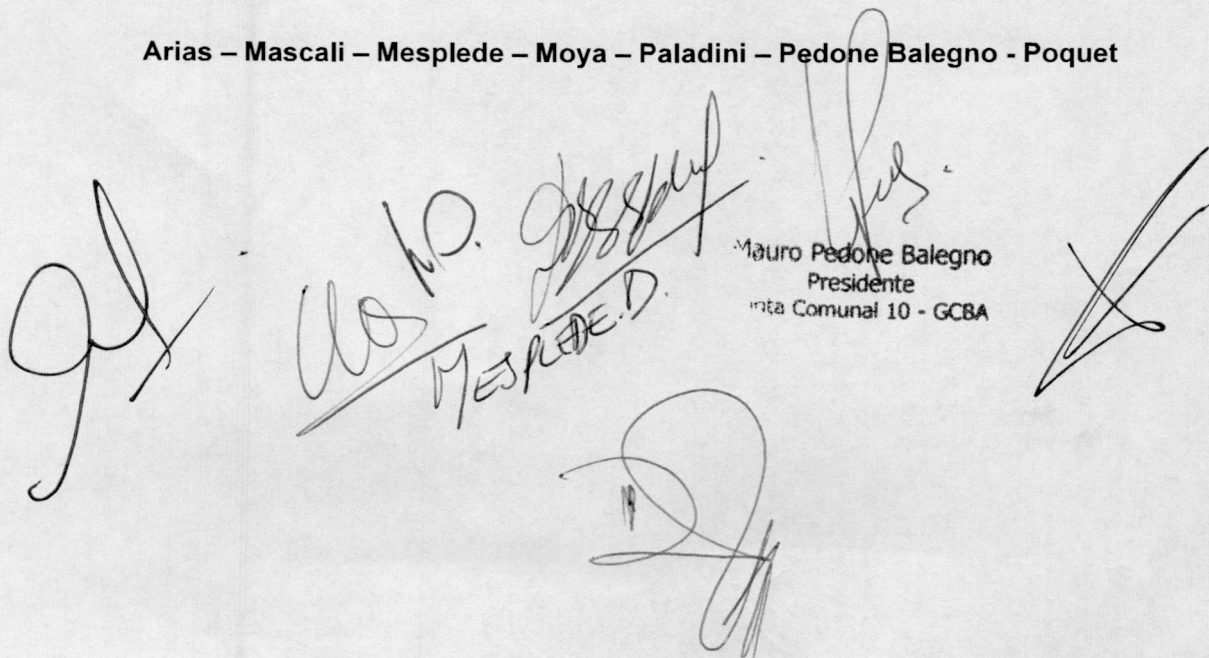 Arias – Mascali – Mesplede – Moya – Paladini – Pedone Balegno - Poquet
MESPLEDE.D.
Mauro Pedone Balegno
Presidente
nta Comunal 10 - GCBA